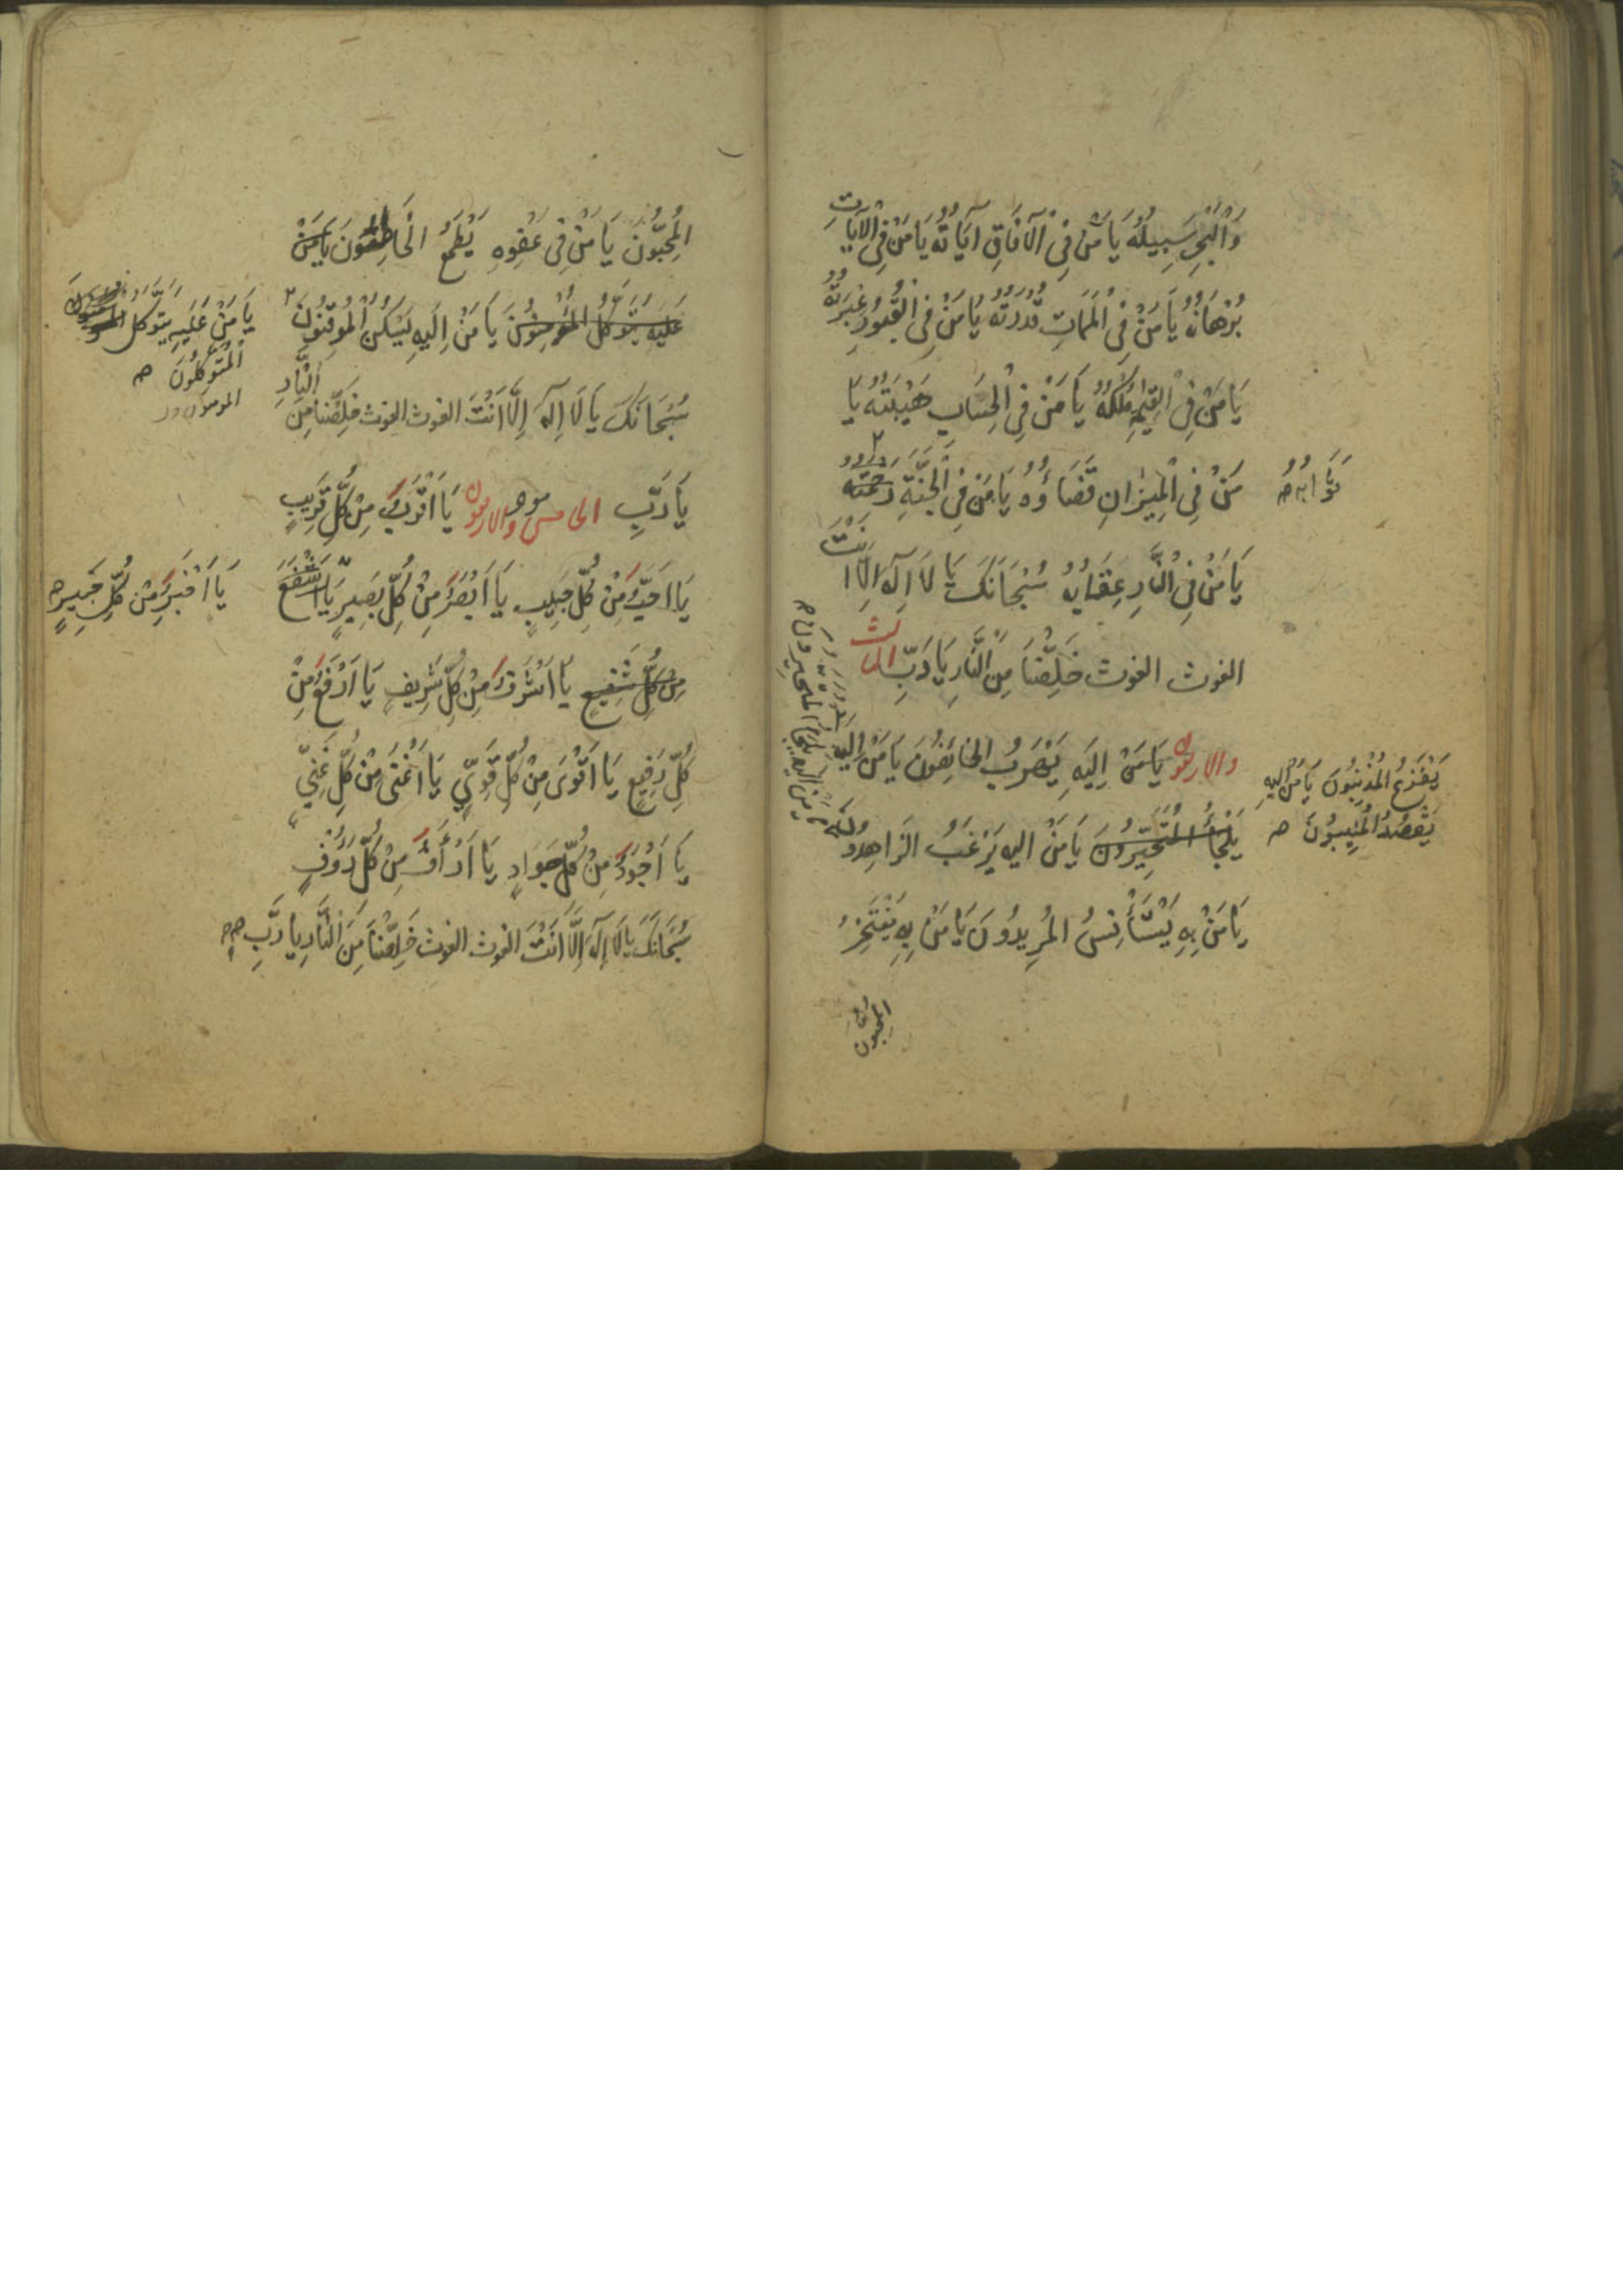 وَالْبَحْرِ سَبِيلُهُ يَا مَنْ فِي الْآفَاقِ آيَاتُهُ يَا مَنْ فِي الْآيَاتِ
بُرْهَانُهُ يَا مَنْ فِي الْمَمَاتِ قُدْرَتُهُ يَا مَنْ فِي الْقُبُورِ عِبْرَتُهُ
يَا مَنْ فِي الْقِيٰمَةِ مُلْكُهُ يَا مَنْ فِي الْحِسَابِ هَيْبَتُهُ يَا
مَنْ فِي الْمِيزَانِ قَضَاؤُهُ يَا مَنْ فِي الْجَنَّةِ رَحْمَتُهُ
ثَوَابُهُ
يَا مَنْ فِي النَّارِ عِقَابُهُ سُبْحَانَكَ يَا لَا اِلٰهَ اِلَّا اَنْتَ
الغوث الغوث خَلِّصْنَا مِنَ النَّارِ يَا رَبِّ الثالث
والاربعون يَا مَنْ اِلَيْهِ يَهْرَبُ الخَائِفُونَ يَا مَنْ اِلَيْهِ
يَفْزَعُ الْمُذْنِبُونَ يَا مَنْ اِلَيْهِ
يَقْصُدُ الْمُنِيبُونَ
يَلْجَأُ الْمُتَحَيِّرُونَ يَا مَنْ اليه يَرْغَبُ الزَاهِدُونَ
يَا مَنْ اليه يلجأ المتحيرون
يَا مَنْ بِهِ يَسْتَأْنِسُ الْمُرِيدُونَ يَا مَنْ بِهِ يَفْتَخِرُ
المحبون
الْمُحِبُّونَ يَا مَنْ فِي عَفْوِهِ يَطْمَعُ الْخَاطِئُونَ يَا مَنْ
عَلَيْهِ يَتَوَكَّلُ الْمُؤْمِنُونَ يَا مَنْ اِلَيْهِ يَسْكُنُ الْمُوقِنُونَ
يَا مَنْ عَلَيْهِ يَتَوَكَّلُ
الْمُتَوَكِّلُونَ
سُبْحَانَكَ يَا لَا اِلٰهَ اِلَّا اَنْتَ الغوث الغوث خَلِّصْنَا مِنَ النَّارِ
يَا رَبِّ الخامس والاربعون يَا اَقْرَبَ مِنْ كُلِّ قَرِيبٍ
يَا اَحَبَّ مِنْ كُلِّ حَبِيبٍ يَا اَبْصَرَ مِنْ كُلِّ بَصِيرٍ يَا اَشْفَعَ
يَا اَخْبَرَ مِنْ كُلِّ خَبِيرٍ
مِنْ كُلِّ شَفِيعٍ يَا اَشْرَفَ مِنْ كُلِّ شَرِيفٍ يَا اَرْفَعَ مِنْ
كُلِّ رَفِيعٍ يَا اَقْوَى مِنْ كُلِّ قَوِيٍّ يَا اَغْنَى مِنْ كُلِّ غَنِيٍّ
يَا اَجْوَدَ مِنْ كُلِّ جَوَادٍ يَا اَرْأَفَ مِنْ كُلِّ رَؤُفٍ
سُبْحَانَكَ يَا لَا اِلٰهَ اِلَّا اَنْتَ الغوث الغوث خَلِّصْنَا مِنَ النَّارِ يَا رَبِّ